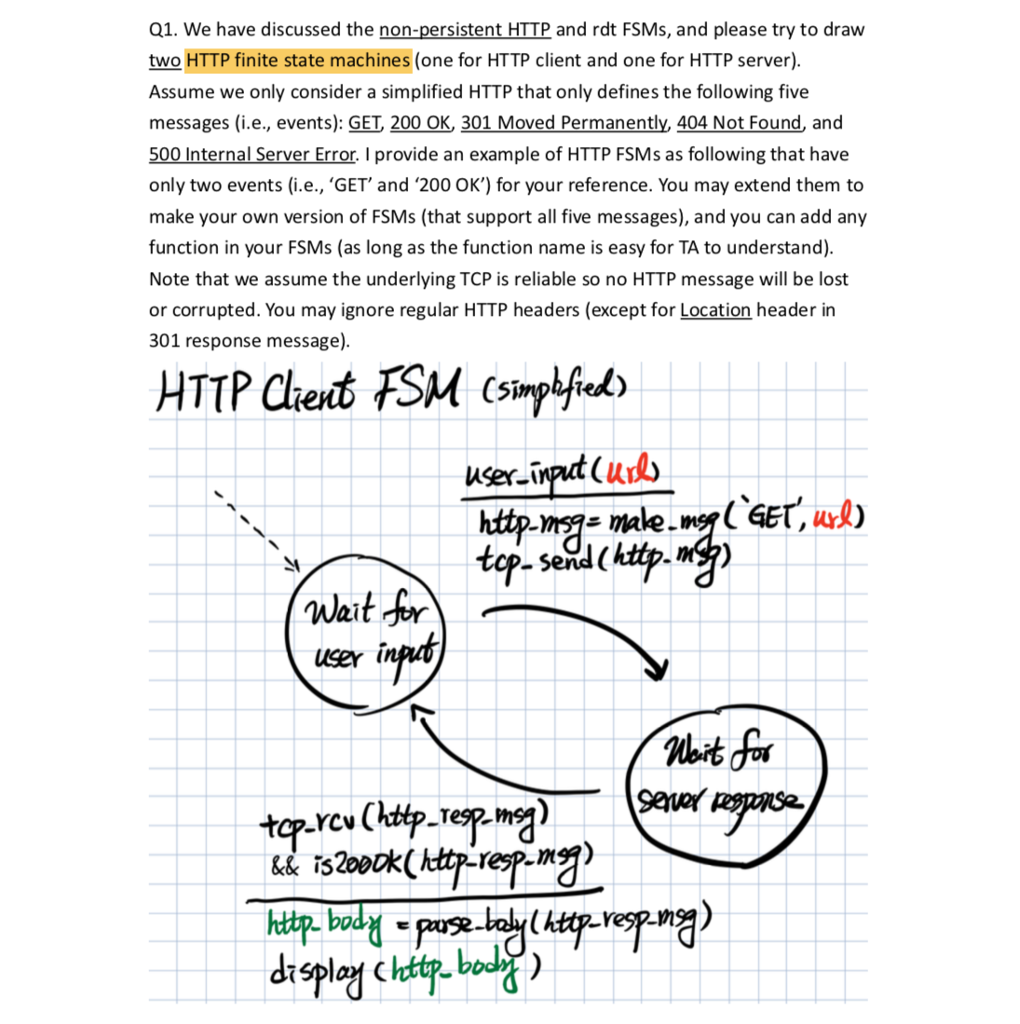 Q1. We have discussed the non-persistent HTTP and rdt FSMs, and please try to draw
two HTTP finite state machines (one for HTTP client and one for HTTP server).
Assume we only consider a simplified HTTP that only defines the following five
messages (i.e., events): GET, 200 OK, 301 Moved Permanently, 404 Not Found, and
500 Internal Server Error. I provide an example of HTTP FSMs as following that have
only two events (i.e., ‘GET’ and ‘200 OK’) for your reference. You may extend them to
make your own version of FSMs (that support all five messages), and you can add any
function in your FSMs (as long as the function name is easy for TA to understand).
Note that we assume the underlying TCP is reliable so no HTTP message will be lost
or corrupted. You may ignore regular HTTP headers (except for Location header in
301 response message).
HTTP Client FSM (simplified)
user_input(url)
http_msg = make_msg(`GET', url)
tcp_send(http_msg)
Wait for
user input
Wait for
server response
tcp_rcv(http_resp_msg)
&& is200OK(http_resp_msg)
http_body = parse_body(http_resp_msg)
display(http_body)